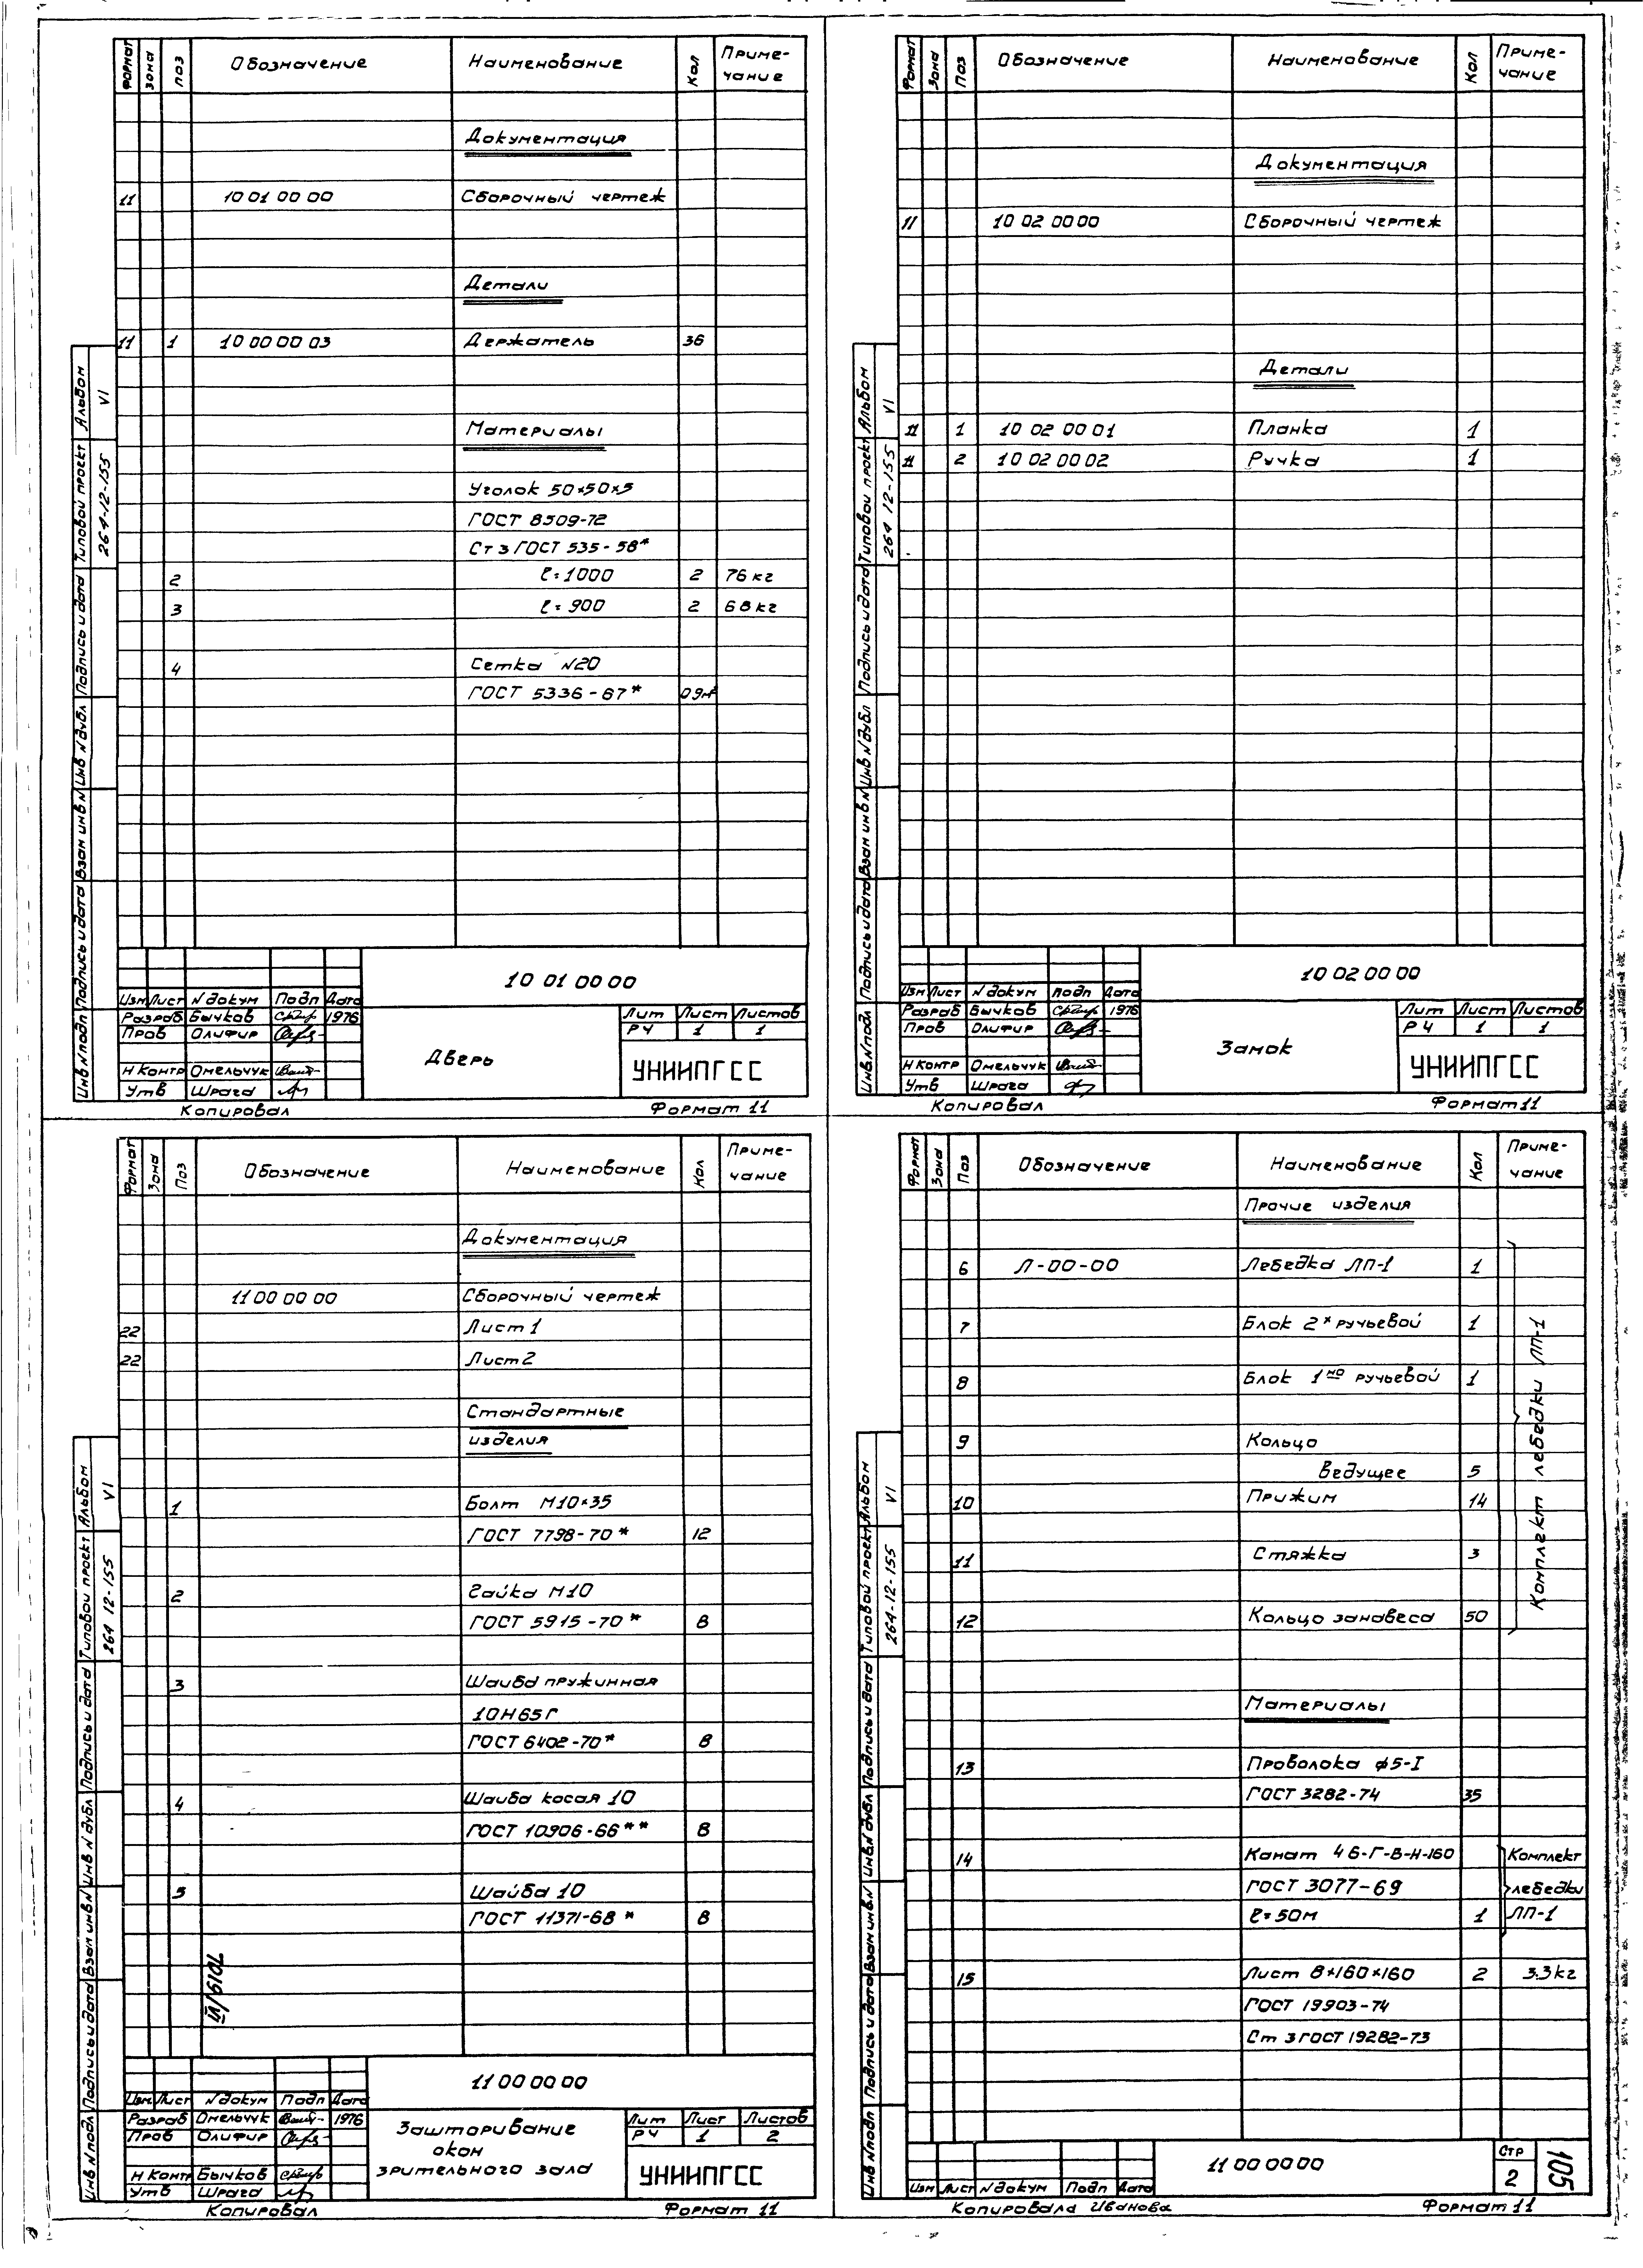 Формат Зона Поз Обозначение Наименование Кол Приме-
чание
Документация
11 10 01 00 00 Сборочный чертеж
Детали
11 1 10 00 00 03 Держатель 36
Материалы
Уголок 50×50×5
ГОСТ 8509-72
Ст 3 ГОСТ 535-58*
2 ℓ=1000 2 76 кг
3 ℓ=900 2 68 кг
4 Сетка N20
ГОСТ 5336-67* 09м²
Альбом VI
Типовой проект 264-12-155
Подпись и дата
Инв N дубл
Взам инв N
Подпись и дата
Инв N подл
10 01 00 00
Изм Лист N докум Подп Дата
Разраб Бычков 1976
Пров Олифир
Н Контр Омельчук
Утв Шрага
Дверь
Лит Лист Листов
РЧ 1 1
УНИИПГСС
Копировал Формат 11
Формат Зона Поз Обозначение Наименование Кол Приме-
чание
Документация
11 10 02 00 00 Сборочный чертеж
Детали
11 1 10 02 00 01 Планка 1
11 2 10 02 00 02 Ручка 1
Альбом VI
Типовой проект 264 12-155
Подпись и дата
Инв N дубл
Взам инв N
Подпись и дата
Инв N подл
10 02 00 00
Изм Лист N докум Подп Дата
Разраб Бычков 1976
Пров Олифир
Н Контр Омельчук
Утв Шрага
Замок
Лит Лист Листов
РЧ 1 1
УНИИПГСС
Копировал Формат 11
Формат Зона Поз Обозначение Наименование Кол Приме-
чание
Документация
11 00 00 00 Сборочный чертеж
22 Лист 1
22 Лист 2
Стандартные
изделия
1 Болт М10×35
ГОСТ 7798-70* 12
2 Гайка М10
ГОСТ 5915-70* 8
3 Шайба пружинная
10Н65Г
ГОСТ 6402-70* 8
4 Шайба косая 10
ГОСТ 10906-66** 8
5 Шайба 10
ГОСТ 11371-68* 8
7019/VI
Альбом VI
Типовой проект 264 12-155
Подпись и дата
Инв N дубл
Взам инв N
Подпись и дата
Инв N подл
11 00 00 00
Изм Лист N докум Подп Дата
Разраб Омельчук 1976
Пров Олифир
Н Контр Бычков
Утв Шрага
Зашторивание
окон
зрительного зала
Лит Лист Листов
РЧ 1 2
УНИИПГСС
Копировал Формат 11
Формат Зона Поз Обозначение Наименование Кол Приме-
чание
Прочие изделия
6 Л-00-00 Лебедка ЛП-1 1
7 Блок 2х ручьевой 1
8 Блок 1но ручьевой 1
9 Кольцо
Ведущее 5
10 Прижим 14
11 Стяжка 3
12 Кольцо занавеса 50
Комплект лебедки ЛП-1
Материалы
13 Проволока ф5-I
ГОСТ 3282-74 35
14 Канат 4 6-Г-В-Н-160 Комплект
ГОСТ 3077-69 лебедки
ℓ=50м 1 ЛП-1
15 Лист 8×160×160 2 3.3кг
ГОСТ 19903-74
Ст 3 ГОСТ 19282-73
Альбом VI
Типовой проект 264-12-155
Подпись и дата
Инв N дубл
Взам инв N
Подпись и дата
Инв N подл
11 00 00 00
Изм Лист N докум Подп Дата
Стр
2
105
Копировала Иванова Формат 11